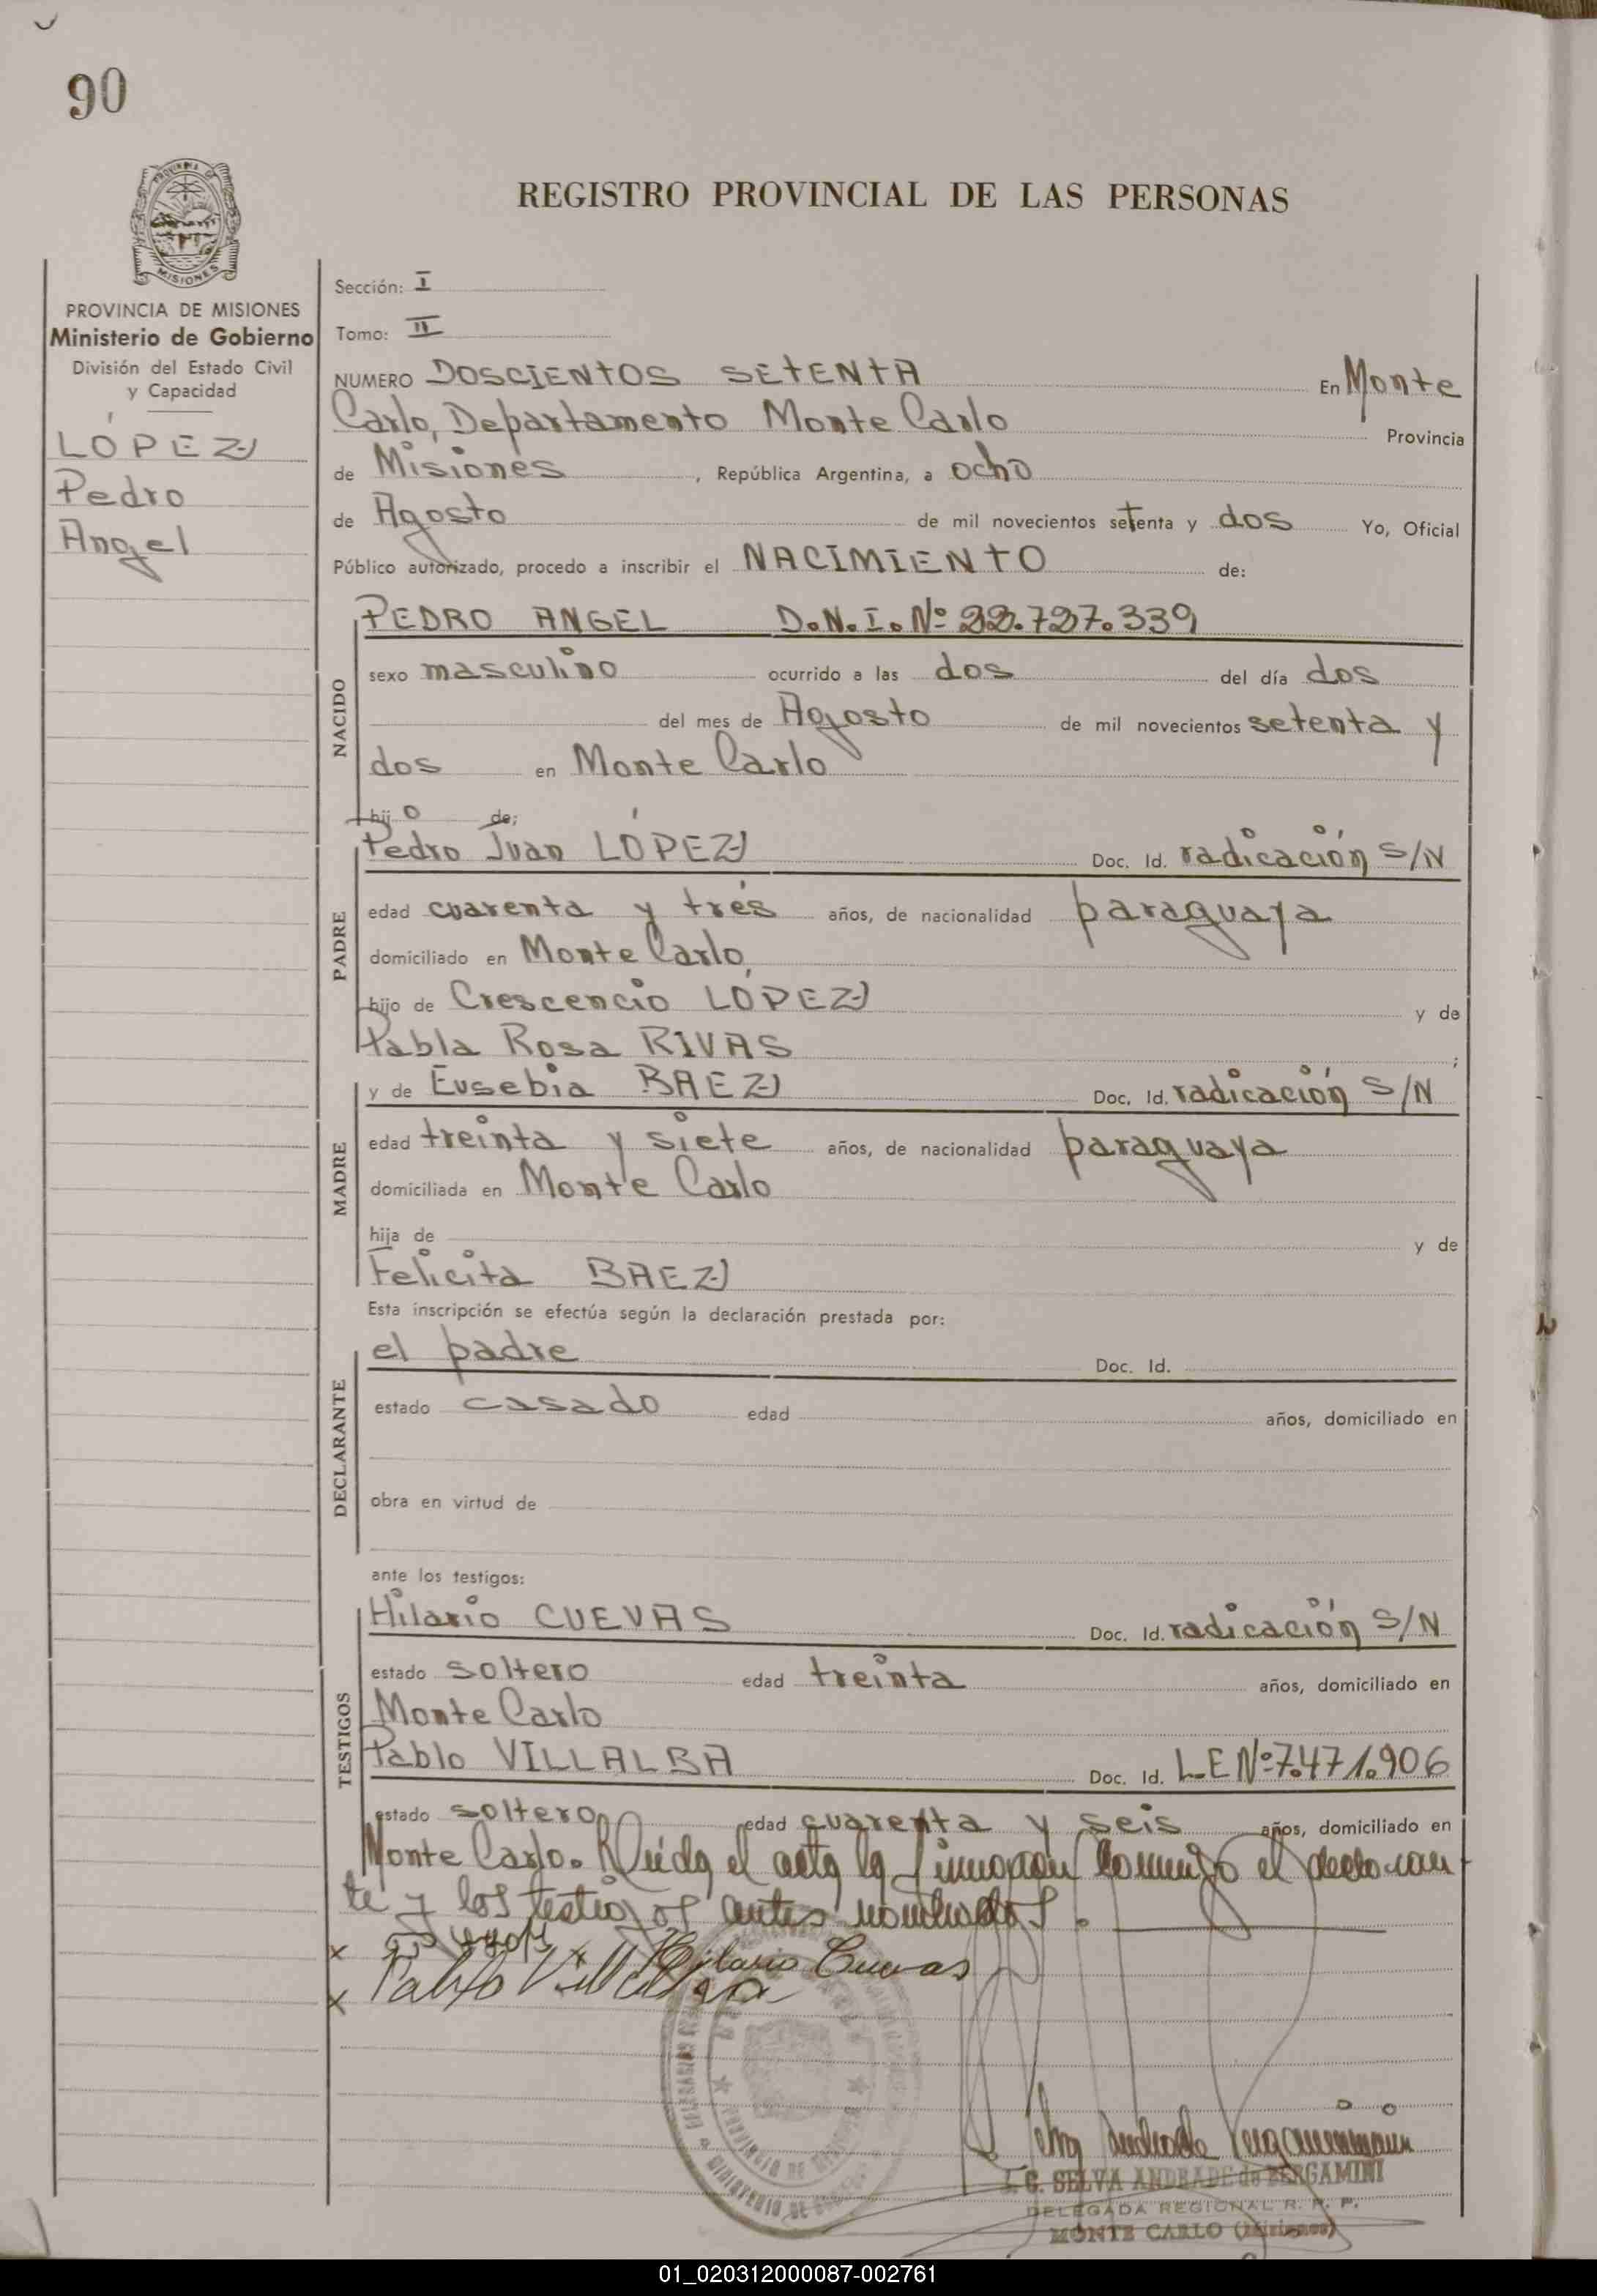 90
PROVINCIA DE MISIONES
Ministerio de Gobierno
División del Estado Civil
y Capacidad
LÓPEZ
Pedro
Angel
REGISTRO PROVINCIAL DE LAS PERSONAS
Sección: I
Tomo: II
NUMERO DOSCIENTOS SETENTA En Monte
Carlo, Departamento Monte Carlo Provincia
de Misiones, República Argentina, a ocho
de Agosto de mil novecientos setenta y dos Yo, Oficial
Público autorizado, procedo a inscribir el NACIMIENTO de:
NACIDO
PEDRO ANGEL D.N.I. Nº 22.727.339
sexo masculino ocurrido a las dos del día dos
del mes de Agosto de mil novecientos setenta y
dos en Monte Carlo
hijo de:
PADRE
Pedro Juan LÓPEZ Doc. Id. radicación S/N
edad cuarenta y tres años, de nacionalidad paraguaya
domiciliado en Monte Carlo,
hijo de Crescencio LOPEZ y de
Pabla Rosa RIVAS ;
MADRE
y de Eusebia BAEZ Doc. Id. radicación S/N
edad treinta y siete años, de nacionalidad paraguaya
domiciliada en Monte Carlo
hija de y de
Felicita BAEZ
Esta inscripción se efectúa según la declaración prestada por:
DECLARANTE
el padre Doc. Id.
estado casado edad años, domiciliado en
obra en virtud de
ante los testigos:
TESTIGOS
Hilario CUEVAS Doc. Id. radicación S/N
estado soltero edad treinta años, domiciliado en
Monte Carlo
Pablo VILLALBA Doc. Id. L.E Nº 7.471.906
estado soltero edad cuarenta y seis años, domiciliado en
Monte Carlo. Leída el acta la firman conmigo el declaran
te y los testigos antes nombrados.
x Hilario Cuevas
x Pablo Villalba
PROVINCIA DE MISIONES
MINISTERIO DE GOBIERNO
SELVA ANDRADE de BERGAMINI
DELEGADA REGIONAL R. P. P.
MONTE CARLO (Misiones)
01_020312000087-002761